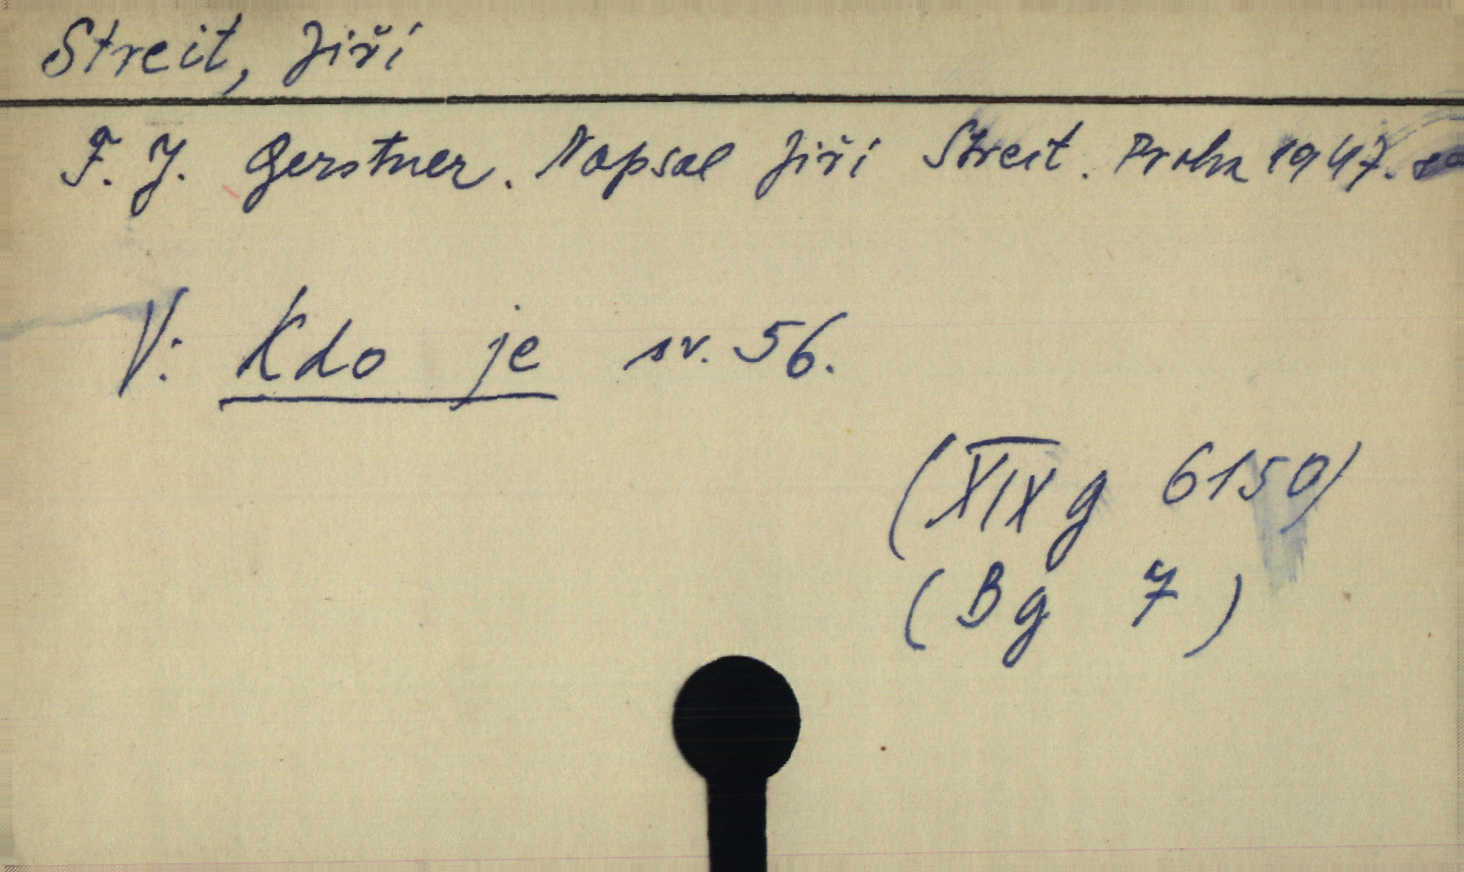 Streit, Jiří
F. J. Gerstner. Napsal Jiří Streit. Praha 1947.
V: Kdo je sv. 56.
(XIX g 6150)
(Bg 7)